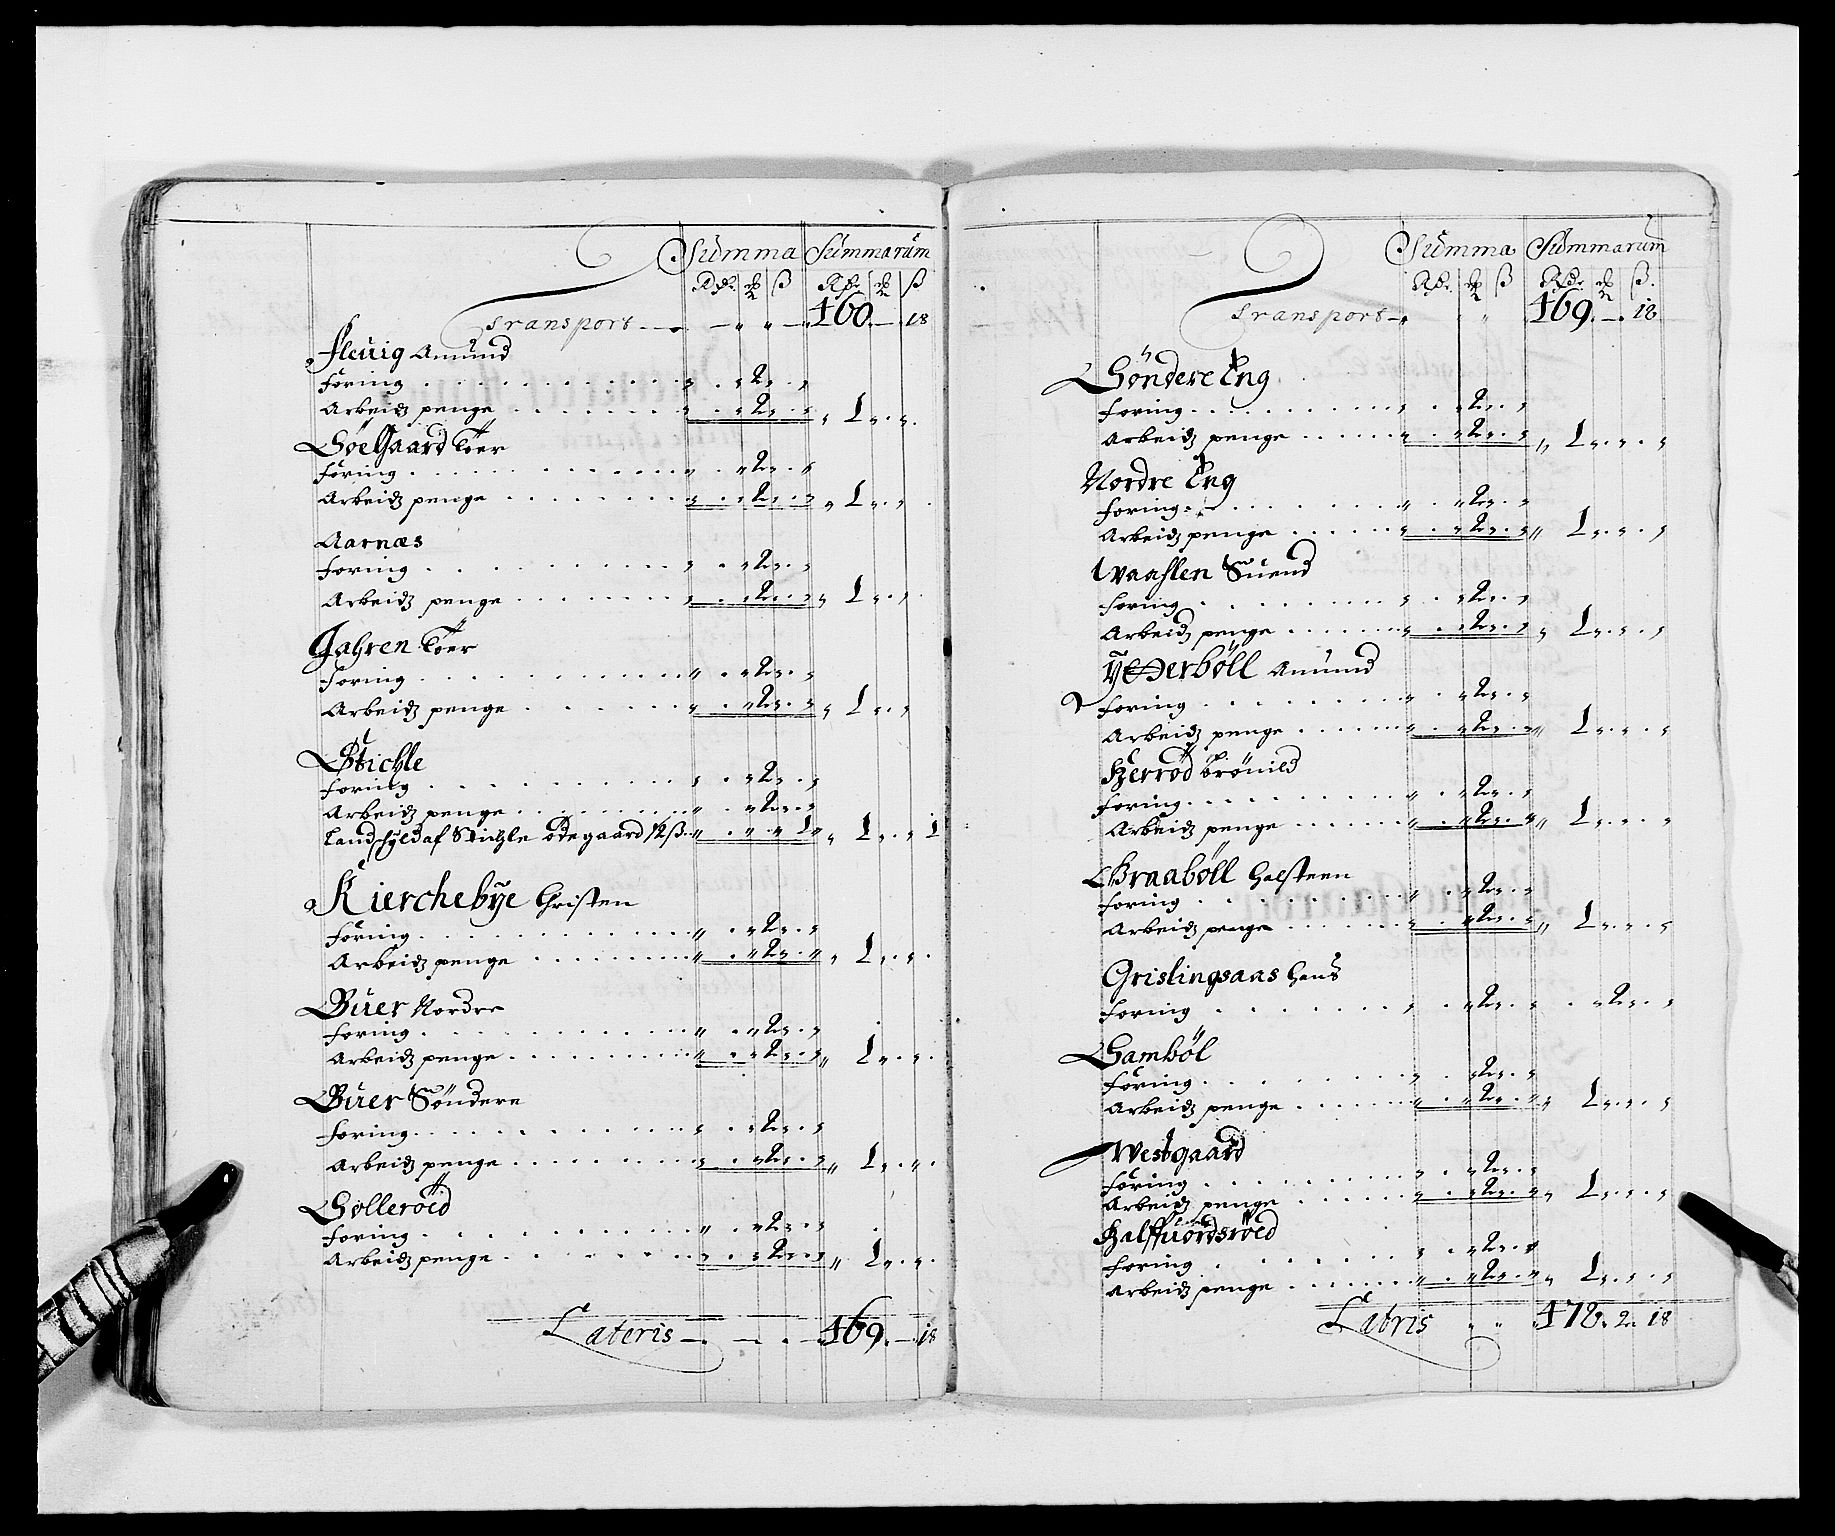 Summa Summarum
Rdr. ß Rdr. ß
Transport 460 . — . 18
Fleuig Amund
Foring . . . 2 .
Arbeidz penge . . . 2 . 1 . .
Söegaard Toer
Foring . . . 2 .
Arbeidz penge . . . 2 . 1 . .
Aarnæs
Foring . . . 2 .
Arbeidz penge . . . 2 . 1 . .
Jahren Toer
Foring . . . 2 .
Arbeidz penge . . . 2 . 1 . .
Stichle
Foring . . . 2 .
Arbeidz penge . . . 2 .
Landschyld af Stichle ödegaard 12 ß . . 1 . 1 . . 1
Kierchebye Christen
Foring . . . 2 .
Arbeidz penge . . . 2 . 1 . .
Buer Nordre
Foring . . . 2 .
Arbeidz penge . . . 2 . 1 . .
Buer Söndere
Foring . . . 2 .
Arbeidz penge . . . 2 . 1 . .
Solleröed
Foring . . . 2 .
Arbeidz penge . . . 2 . 1 . .
Lateris — 469 . — 18
Summa Summarum
Rdr. ß Rdr. ß.
Transport 469 . — . 18
Söndere Eng
Foring . . . 2 .
Arbeidz penge . . . 2 . 1 . .
Nordre Eng
Foring . . . 2 .
Arbeidz penge . . . 2 . 1 . .
Waaslen Suend
Foring . . . 2 .
Arbeidz penge . . . 2 . 1 . .
Ytterböll Amund
Foring . . . 2 .
Arbeidz penge . . . 2 . 1 . .
Herröd Brönild
Foring . . . 2 .
Arbeidz penge . . . 2 . 1 . .
Braaböll Halsteen
Foring . . . 2 .
Arbeidz penge . . . 2 . 1 . .
Grislingsaas Hans
Foring . . . 2 . . 2 .
Gamböl
Foring . . . 2 .
Arbeidz penge . . . 2 . 1 . .
Westgaard
Foring . . . 2 .
Arbeidz penge . . . 2 . 1 . .
Halffuordsröed
Foring . . . 2 .
Arbeidz penge . . . 2 . 1 . .
Latris 478 . 2 . 18